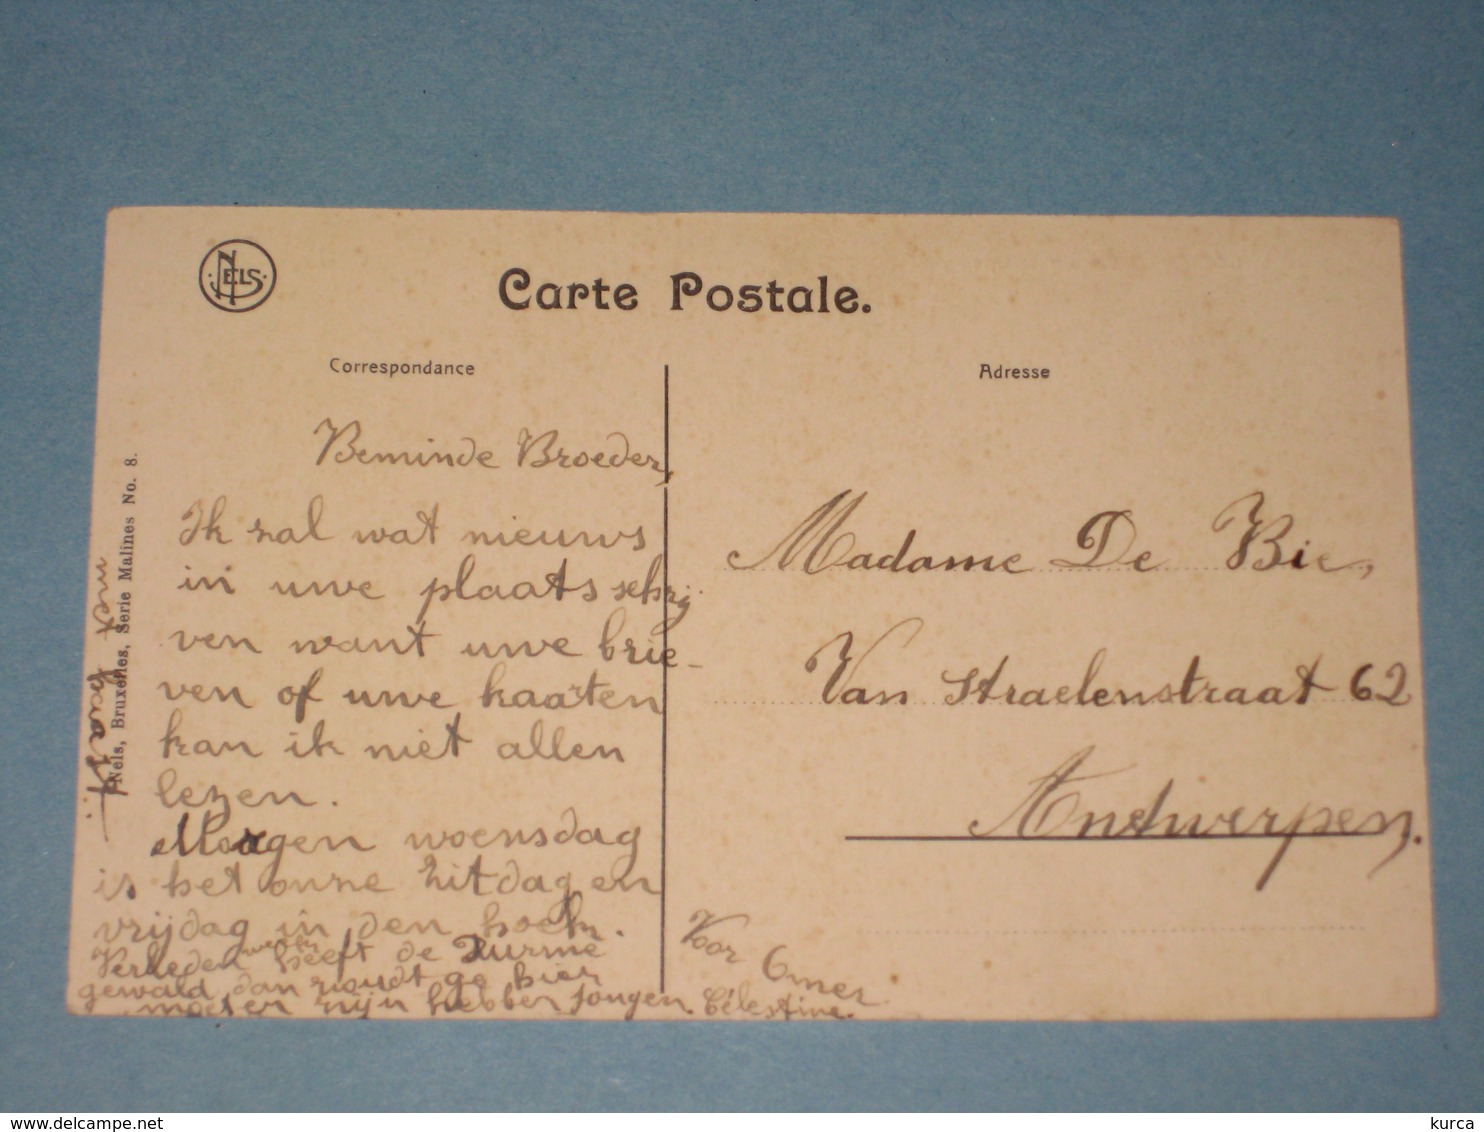 NELS
Carte Postale.
Correspondance
Adresse
Nels, Bruxelles, Serie Malines No. 8.
Beminde Broeder,
Ik zal wat nieuws
in uwe plaats schrij
ven want uwe brie-
ven of uwe kaarten
kan ik niet allen
lezen.
Morgen woensdag
is het onze zitdag en
vrijdag in den hoek.
Verleden week heeft de
gewaid dan zoudt ge hier
moeten zijn hebben jongen. Célestine.
Madame De Bie,
Van Straelenstraat 62
Antwerpen.
Voor Omer
delcampe.net
kurca